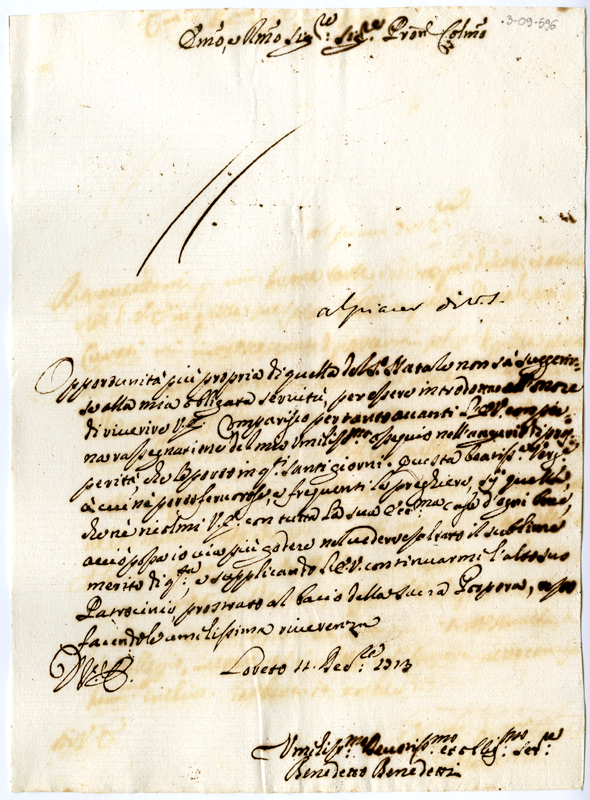 3-09-596
Em̃o, e Rm̃o Sig.re Sig.re Pron̄ Colm̃o
al piacer di V.S.
Opportunità più propria di quella del S.º Natale non sà suggerir-
se alla mia obligata servitù, per essere introdotta all'onore
di riverire V.E. Comparisco per tanto avanti l'E.V. con pie-
na rassegnazione del mio umiliss.mo ossequio nell'augurio di pros-
perità, che le porto in q.ti santi giorni. Questa beatiss.a Verg.e
à cui nè porto fervorose, e frequenti le preghiere, sij quella,
che nè ricolmi V.E. con tutta la sua Ecc.ma casa d'ogni bene,
acciò possa io via più godere nel vedere esaltato il sublime
merito di q.ta, e supplicando l'E.V. continuarmi l'alto suo
Patrocinio prostrato al bacio della Sacra Porpora, resto
facendole umilissima riverenza
D.V.E.
Loreto 11 Dec.re 1713
Umiliss.mo Devotiss.mo et Oblig.mo Ser.re
Benedetto Benedetti